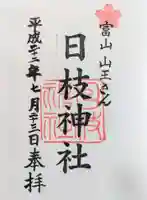 富山 山王さん
日枝神社
平成二十二年七月二十三日奉拝